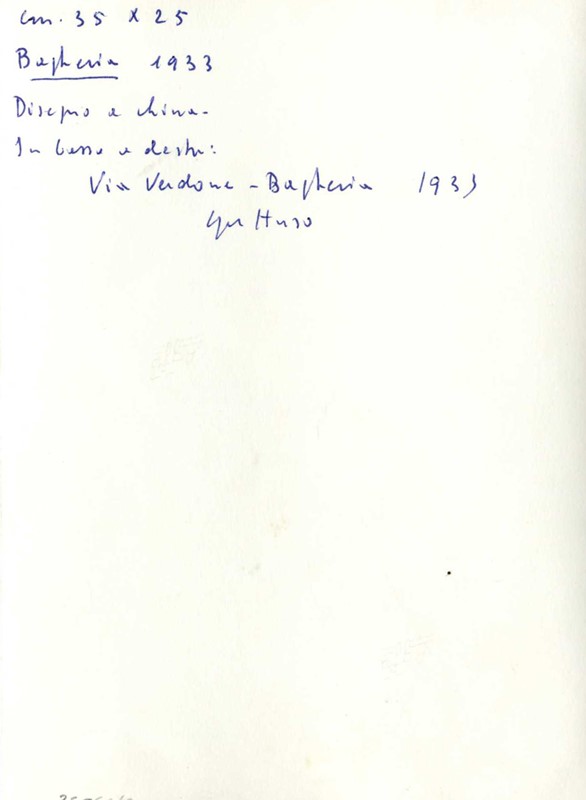 cm. 35 x 25
Bagheria 1933
Disegno a china.
In basso a destra:
Via Verdone - Bagheria 1933